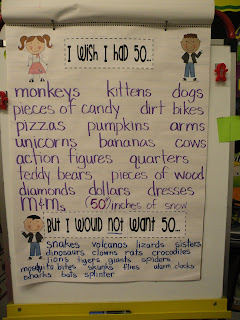 I wish I had 50...
monkeys kittens dogs
pieces of candy dirt bikes
pizzas pumpkins arms
unicorns bananas cows
action figures quarters
teddy bears pieces of wood
diamonds dollars dresses
M&Ms (50) inches of snow
But I would not want 50...
Snakes volcanos lizards sisters
dinosaurs clowns rats crocodiles
lions tigers giants spiders
mosquito bites skunks flies alarm clocks
sharks bats splinter